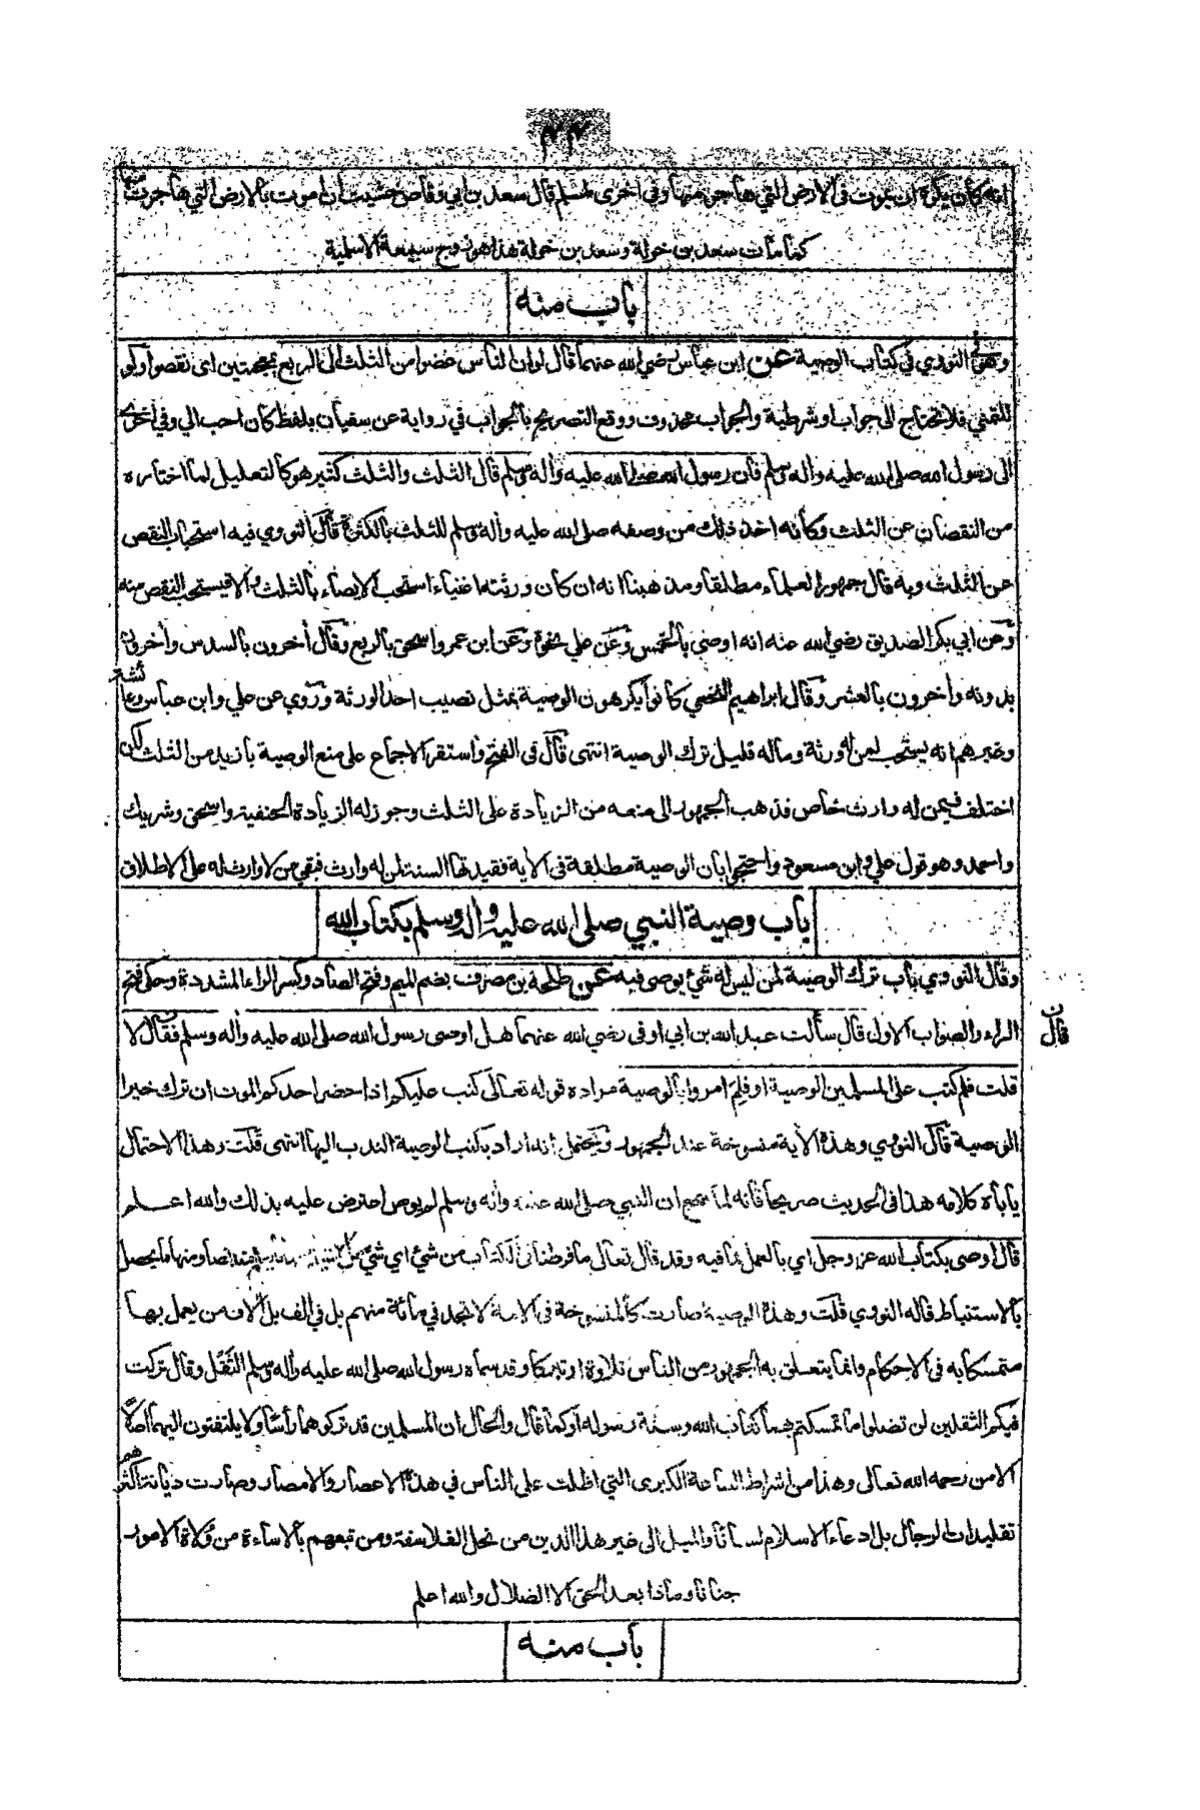 ٤٤
انه كان يكره ان يموت في الارض التي هاجر منها وفي اخرى لمسلم قال سعد بن ابي وقاص خشيت ان اموت بالارض التي هاجرت منها
كما مات سعد بن خولة وسعد بن خولة هذا هو زوج سبيعة الاسلمية
باب منه
وهو في النووي في كتاب الوصية عن ابن عباس رضي الله عنهما قال لو ان الناس غضوا من الثلث الى الربع بمعجمتين اى نقصوا ولو
للتمني فلا تحتاج الى جواب او شرطية والجواب محذوف ووقع التصريح بالجواب في رواية عن سفيان بلفظ كان احب الي وفي اخرى
الى رسول الله صلى الله عليه واله وسلم فان رسول الله صلى الله عليه واله وسلم قال الثلث والثلث كثير هو كالتعليل لما اختاره
من النقصان عن الثلث وكأنه اخذ ذلك من وصفه صلى الله عليه واله وسلم للثلث بالكثرة قال النووي فيه استحباب النقص
عن الثلث وبه قال جمهور العلماء مطلقا ومذهبنا انه ان كان ورثته اغنياء استحب الايصاء بالثلث والا فيستحب النقص منه
وعن ابي بكر الصديق رضي الله عنه انه اوصى بالخمس وعن علي نحوه وعن ابن عمر واسحق بالربع وقال آخرون بالسدس وآخرون
بدونه وآخرون بالعشر وقال ابراهيم النخعي كانوا يكرهون الوصية بمثل نصيب احد الورثة وروي عن علي وابن عباس وعائشة
وغيرهم انه يستحب لمن له ورثة وماله قليل ترك الوصية انتهى قال في الفتح واستقر الاجماع على منع الوصية بازيد من الثلث لكن
اختلف فيمن له وارث خاص فذهب الجمهور الى منعه من الزيادة على الثلث وجوز له الزيادة الحنفية واسحق وشريك
واحمد وهو قول علي وابن مسعود واحتجوا بان الوصية مطلقة في الآية فقيدتها السنة لمن له وارث فبقي من لا وارث له على الاطلاق
باب وصية النبي صلى الله عليه واله وسلم بكتاب الله
وقال النووي باب ترك الوصية لمن ليس له شئ يوصى فيه عن طلحة بن مصرف بضم الميم وفتح الصاد وكسر الراء المشددة وحكي فتح
الراء والصواب الاول قال سألت عبد الله بن ابي اوفى رضي الله عنهما هل اوصى رسول الله صلى الله عليه واله وسلم فقال لا
قال
قلت فلم كتب على المسلمين الوصية او فلم امروا بالوصية مراده قوله تعالى كتب عليكم اذا حضر احدكم الموت ان ترك خيرا
الوصية قال النووي وهذه الآية منسوخة عند الجمهور ويحتمل انه اراد بكتب الوصية الندب اليها انتهى قلت وهذا الاحتمال
يأباه كلامه هذا في الحديث صريحا فانه لما سمع ان النبي صلى الله عليه واله وسلم لم يوص اعترض عليه بذلك والله اعلم
قال اوصى بكتاب الله عز وجل اي بالعمل بما فيه وقد قال تعالى ما فرطنا في الكتاب من شئ اي شئ نصا ومنها ما يحصل
بالاستنباط قاله النووي قلت وهذه الوصية صارت كالمنسوخة في الامة لا تجد في مائة منهم بل في الف بل آلاف من يعمل بها
متمسكا به في الاحكام وانما يتعلق به الجمهور من الناس تلاوة او تبركا وقد سماه رسول الله صلى الله عليه واله وسلم الثقل وقال تركت
فيكم الثقلين لن تضلوا ما تمسكتم بهما كتاب الله وسنة رسوله او كما قال والحال ان المسلمين قد تركوهما رأسا ولا يلتفتون اليهما اصلا
الا من رحمه الله تعالى وهذا من اشراط الساعة الكبرى التي اظلت على الناس في هذه الاعصار والامصار وصارت ديانة اكثرهم
تقليدات الرجال بل ادعاء الاسلام لسانا والميل الى غير هذا الدين من نحل الفلاسفة ومن تبعهم بالاساءة من ولاة الامور
جنانا وماذا بعد الحق الا الضلال والله اعلم
باب منه